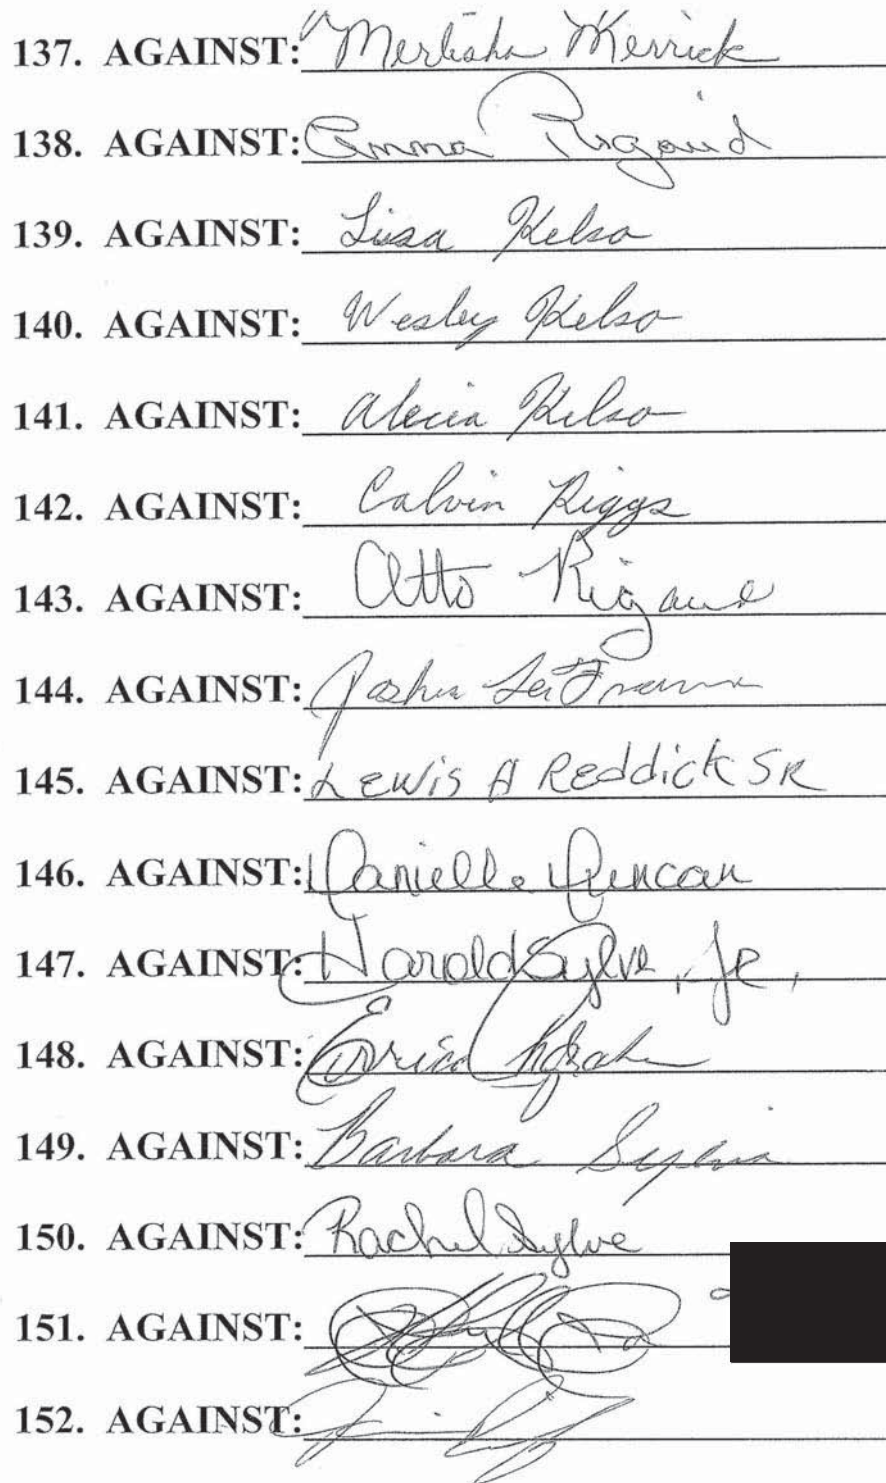 137. AGAINST: Merlisha Merrick
138. AGAINST: Emma Rigaud
139. AGAINST: Lisa Kelso
140. AGAINST: Wesley Kelso
141. AGAINST: Alecia Kelso
142. AGAINST: Calvin Riggs
143. AGAINST: Otto Rigaud
144. AGAINST: Joshua
145. AGAINST: Lewis A Reddick SR
146. AGAINST: Danielle Duncan
147. AGAINST: Harold Sylve, Jr,
148. AGAINST:
149. AGAINST: Barbara
150. AGAINST: Rachel Sylve
151. AGAINST:
152. AGAINST: